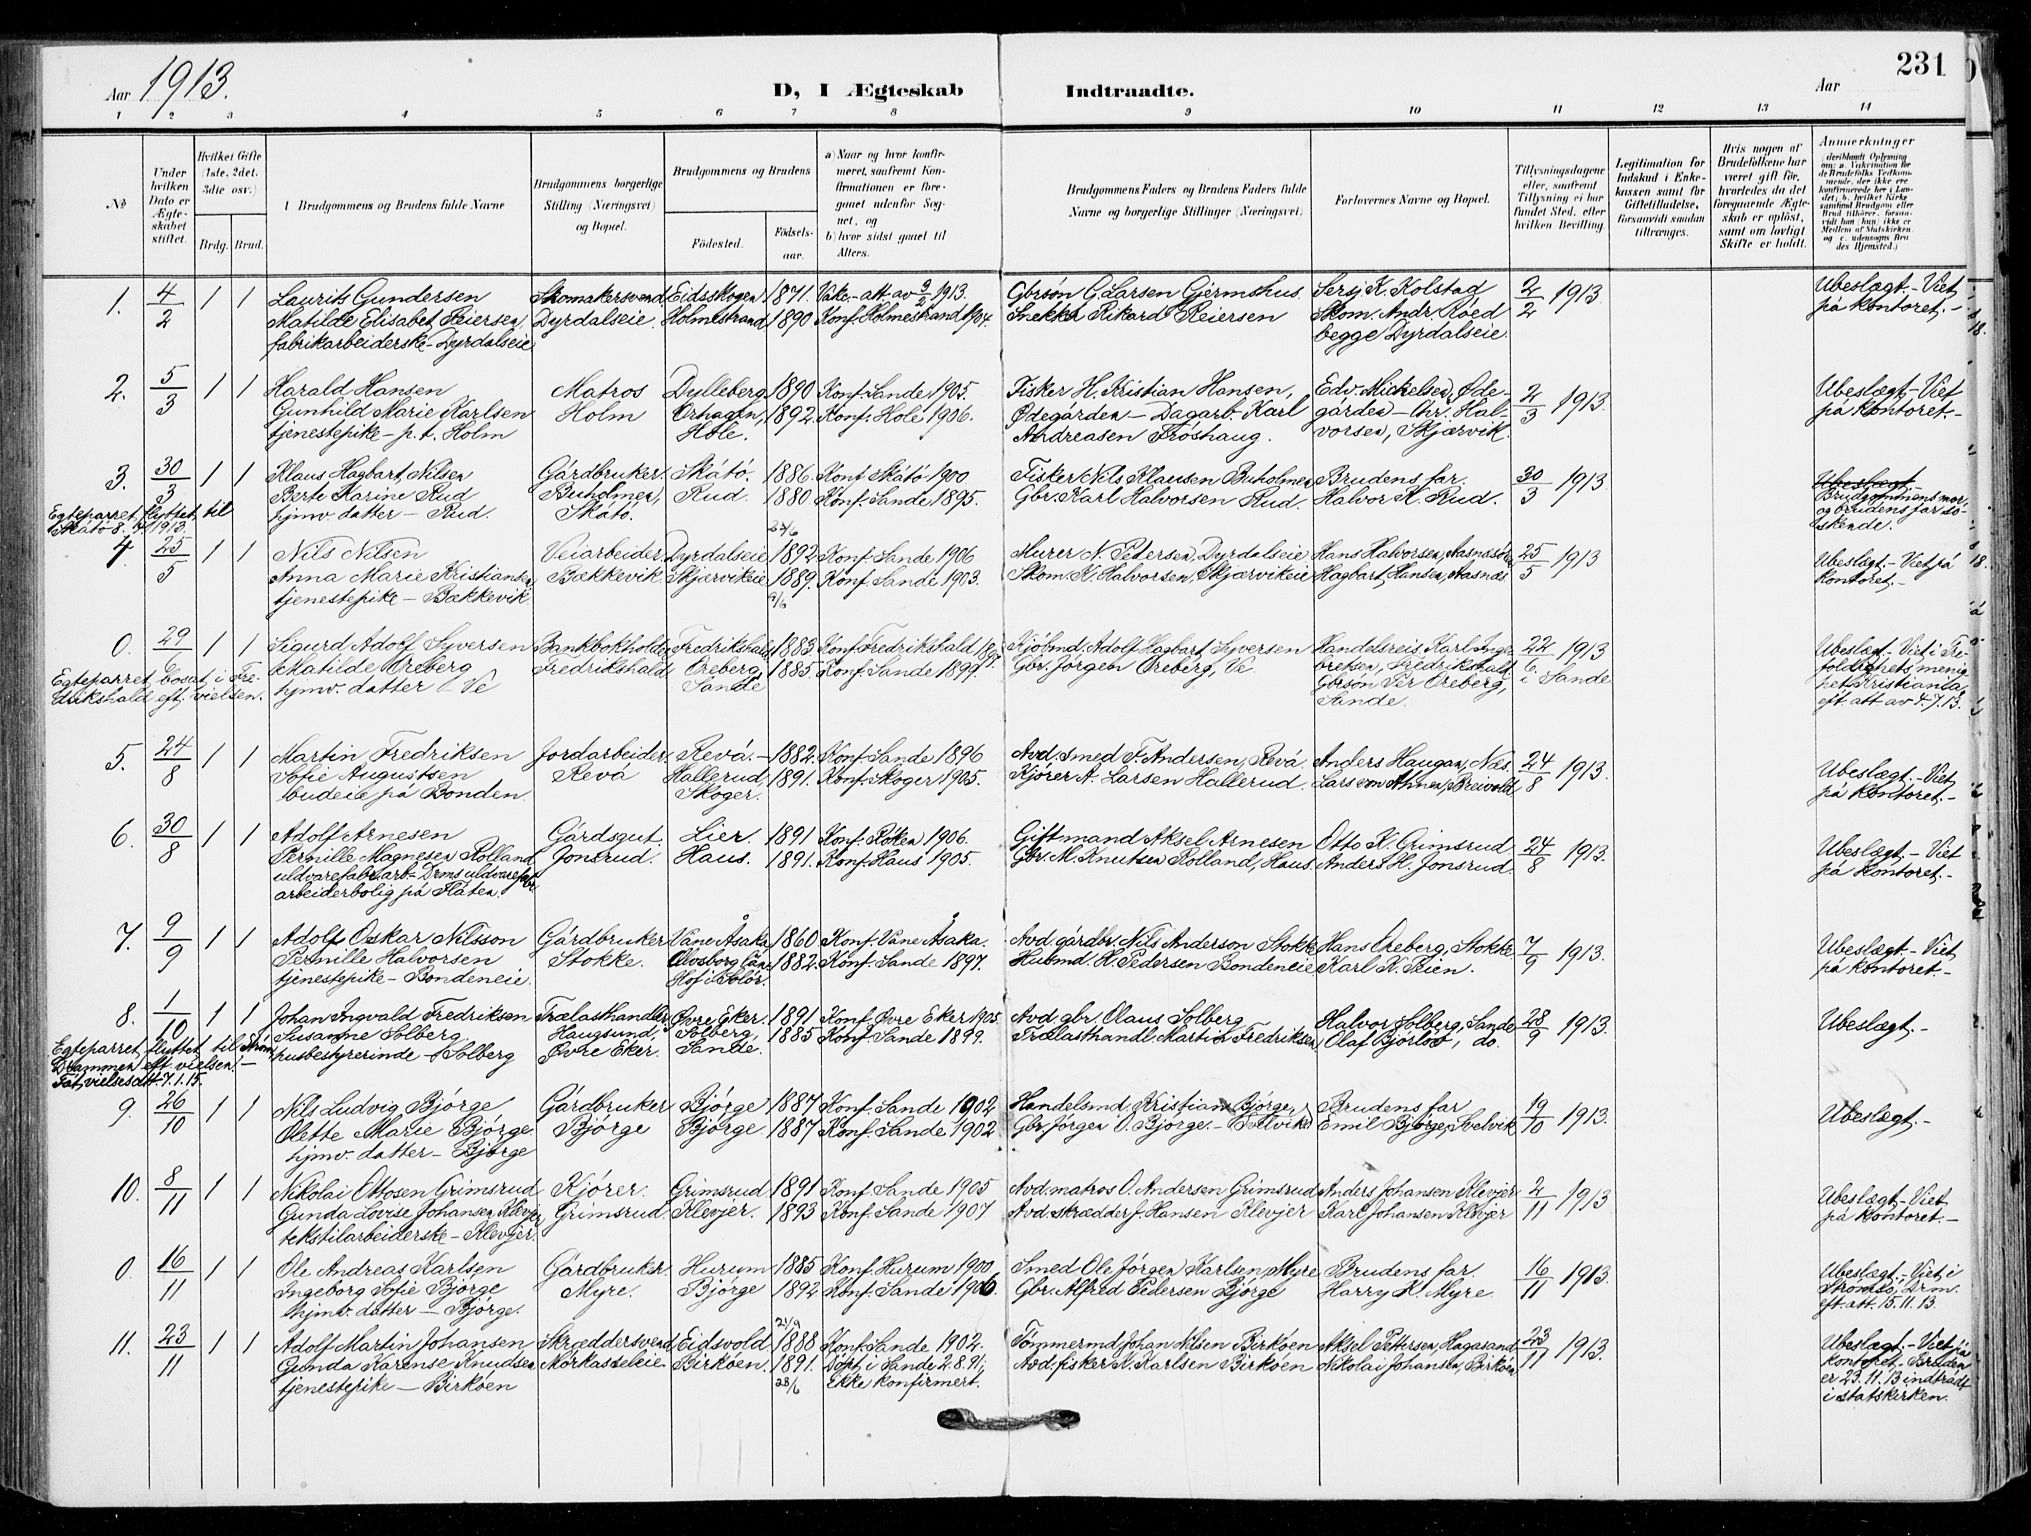 231
Aar 1913.
D, I Ægteskab Indtraadte.
Aar
1 2 3 4 5 6 7 8 9 10 11 12 13 14
No
Under hvilken Dato er Ægteskabet stiftet.
Hvilket Gifte (1ste, 2det, 3die osv.)
Brdg. Brud.
Brudgommens og Brudens fulde Navne
Brudgommens borgerlige Stilling (Næringsvei) og Bopæl.
Brudgommens og Brudens
Fødested. Fødselsaar.
a) Naar og hvor konfirmeret, saafremt Konfirmationen er foregaaet udenfor Sognet, og
b) hvor sidst gaaet til Alters.
Brudgommens Faders og Brudens Faders fulde Navne og borgerlige Stillinger (Næringsvei)
Forlovernes Navne og Bopæl.
Tillysningsdagene eller, saafremt Tillysning ei har fundet Sted, efter hvilken Bevilling.
Legitimation for Indskud i Enkekassen samt for Giftetilladelse, forsaavidt saadan tiltrænges.
Hvis nogen af Brudefolkene har været gift før, hvorledes da det foregaaende Ægteskab er opløst, samt om lovligt Skifte er holdt.
Anmærkninger
1. 4/2 1 1 Laurits Gundersen Skomakersvend Eidsskogen 1871. Vakc.-att. av 3/2 1913. Gbrsøn G. Larsen Gjermshus. Sersj. K. Kolstad 2/2 1913. Ubeslægt.- Viet
Matilde Elisabet Reiersen, Dyrdalseie. Holmestrand 1890 Konf. Holmestrand 1904. Snekker Rikard Reiersen Skom. Andr. Røed på kontoret.-
fabrikarbeiderske - Dyrdalseie begge Dyrdalseie.
2. 5/3 1 1 Harald Hansen Matros Dylleberg 1890 Konf. Sande 1905. Fisker H. Kristian Hansen, Edv. Mickelsen, Øde- 2/3 1913. Ubeslægt.- Viet
Gunhild Marie Karlsen Holm Ørhagen, 1892. Konf. Hole 1906. Ødegården - Dagarb. Karl gården - Chr. Hal- på kontoret.-
tjenestepike - p.t. Holm Hole. Andreasen Frøshaug. vorsen, Skjærvik.
3. 30/3 1 1 Klaus Hagbart Nilsen Gårdbruker. Skåtø. 1886. Konf Skåtø 1900 Fisker Nils Klausen Buholmen Brudens far. 30/3 1913. Ubeslægt.-
Berte Karine Rud Buholmen, Rud. 1880 Konf. Sande 1895. Gbr. Karl Halvorsen Rud. Halvor K. Rud. Brudgommens mor
hjmv. datter - Rud. Skåtø. og brudens far sø-
Egteparret flyttet til skende.
Skåtø 8.4.1913.
4 25/5 1 1 Nils Nilsen Veiarbeider Dyrdalseie 1892 Konf. Sande 1906 Murer N. Petersen, Dyrdalseie Hans Halvorsen, Aasnesøren 25/5 1913 Ubeslægt.- Viet på
Anna Marie Kristiansen Bækkevik. Skjærvikeie 1889. Konf. Sande 1903. Skom. K. Halvorsen, Skjærvikeie Hagbart Hansen, Aasnæs kontoret.-
tjenestepike - Bækkevik. 9/6
0. 29 1 1 Sigurd Adolf Syversen Bankbokholder Fredrikshald 1883 Konf. Fredrikshald Kjøbmd. Adolf Hagbart Syversen Handelsreis. Karl Inge- 22/6 1913 Ubeslægt.- Viet i Tre-
Matilde Øreberg Fredrikshald Øreberg 1885. Konf. Sande 1899. Gbr. Jørgen Øreberg, Ve. bretsen, Fredrikshald i Sande foldighets menig-
hjmv. datter - Ve Sande Gbrsøn Per Øreberg, het, Kristiania,
Egteparret bosat i Fre- Sande. eft. att. av 4.7.13.
drikshald eft. vielsen.
5. 24/8 1 1 Martin Fredriksen Jordarbeider. Revå. 1882. Konf. Sande 1896 Avd. smed F. Andersen, Revå Anders Haugan, Nes. 24/8 1913. Ubeslægt.- Viet
Sofie Augustsen Revå Hallerud, 1891. Konf. Skoger 1905. Kjører A. Larsen Hallerud. på kontoret.-
budeie på Bonden. Skoger.
6. 30/8 1 1 Adolf Arnesen Gårdsgut. Lier. 1891 Konf. Røken 1906. Giftmand Aksel Arnesen Otto K. Grimsrud 24/8 1913. Ubeslægt.- Viet
Pernille Magnesen Rolland Jonsrud. Haus. 1891. Konf. Haus 1905. Gbr. M. Knutsen Rolland, Haus Anders H. Jonsrud. på kontoret.-
uldvarefabr.arb. Drms uldvarefabr.
arbeiderbolig på Flåten.
7. 9/9 1 1 Adolf Oskar Nilsson Gårdbruker Väne Åsaka 1860 Konf. Väne Åsaka. Avd. gårdbr. Nils Anderson Stokke Hans Øreberg, Stokke 7/9 1913. Ubeslægt.- Viet
Pernille Halvorsen Stokke. Elvsborg Län 1882. Konf. Sande 1897. Husmd. H. Pedersen Bondeneie Karl K. Teien. på kontoret.-
tjenestepike - Bondeneie. Hof i Solør.
8. 1/10 1 1 Johan Ingvald Fredriksen Trælasthandler Øvre Eker. 1891 Konf. Øvre Eker 1905. Avd. gbr. Olaus Solberg Halvor Solberg, Sande 28/9 1913. Ubeslægt.-
Susanne Solberg Haugsund, Solberg, 1885 Konf. Sande 1899. Trælasthandl. Martin Fredriksen, Olaf Bjørløv, do.
husbestyrerinde - Solberg Øvre Eker. Sande.
Egteparret flyttet til Strøm
Drammen eft. vielsen.-
Fåt. vielsesatt. 7.1.15.
9. 26/10 1 1 Nils Ludvig Bjørge Gårdbruker Bjørge 1887 Konf. Sande 1902 Handelsmd. Kristian Bjørge, Brudens far 19/10 1913. Ubeslægt.-
Olette Marie Bjørge Bjørge Bjørge 1887 Konf. Sande 1902 Gbr. Jørgen O. Bjørge.- Svelvik Emil Bjørge, Svelvik
hjmv. datter - Bjørge
10. 8/11 1 1 Nikolai Ottosen Grimsrud Kjører. Grimsrud 1891 Konf. Sande 1905 Avd. matros O. Andersen Grimsrud Anders Johansen Klevjer 2/11 1913 Ubeslægt.- Viet
Gunda Lovise Johansen Klevjer Grimsrud. Klevjer. 1893 Konf. Sande 1907 Avd. skrædder J. Hansen Klevjer Karl Johansen Klevjer på kontoret.-
tekstilarbeiderske - Klevjer.
0. 16/11 1 1 Ole Andreas Karlsen Gårdbruker. Hurum 1885 Konf. Hurum 1900. Smed Ole Jørgen Karlsen, Myre Brudens far. 16/11 1913. Ubeslægt.- Viet i
Ingeborg Sofie Bjørge Myre. Bjørge 1892 Konf. Sande 1906. Gbr. Alfred Pedersen Bjørge Harry K. Myre. Strømsø, Drm.
hjmv. datter - Bjørge. eft. att. 15.11.13.
11. 23/11 1 1 Adolf Martin Johansen Skræddersvend Eidsvold 1888 Konf. Sande 1902. Tømmermd. Johan Nilsen Birkøen Aksel Pettersen, Hagasand 23/11 1913. Ubeslægt.- Viet på
Gunda Karense Knudsen Mørkasseleie Birkøen. 1891. Døpt i Sande 2.8.91; Avd. fisker K. Karlsen Birkøen Nikolai Johansen, Birkøen kontoret.- Bruden
tjenestepike - Birkøen 28/6 ikke konfirmert. er 23.11.13 indtrådt
i statskirken.